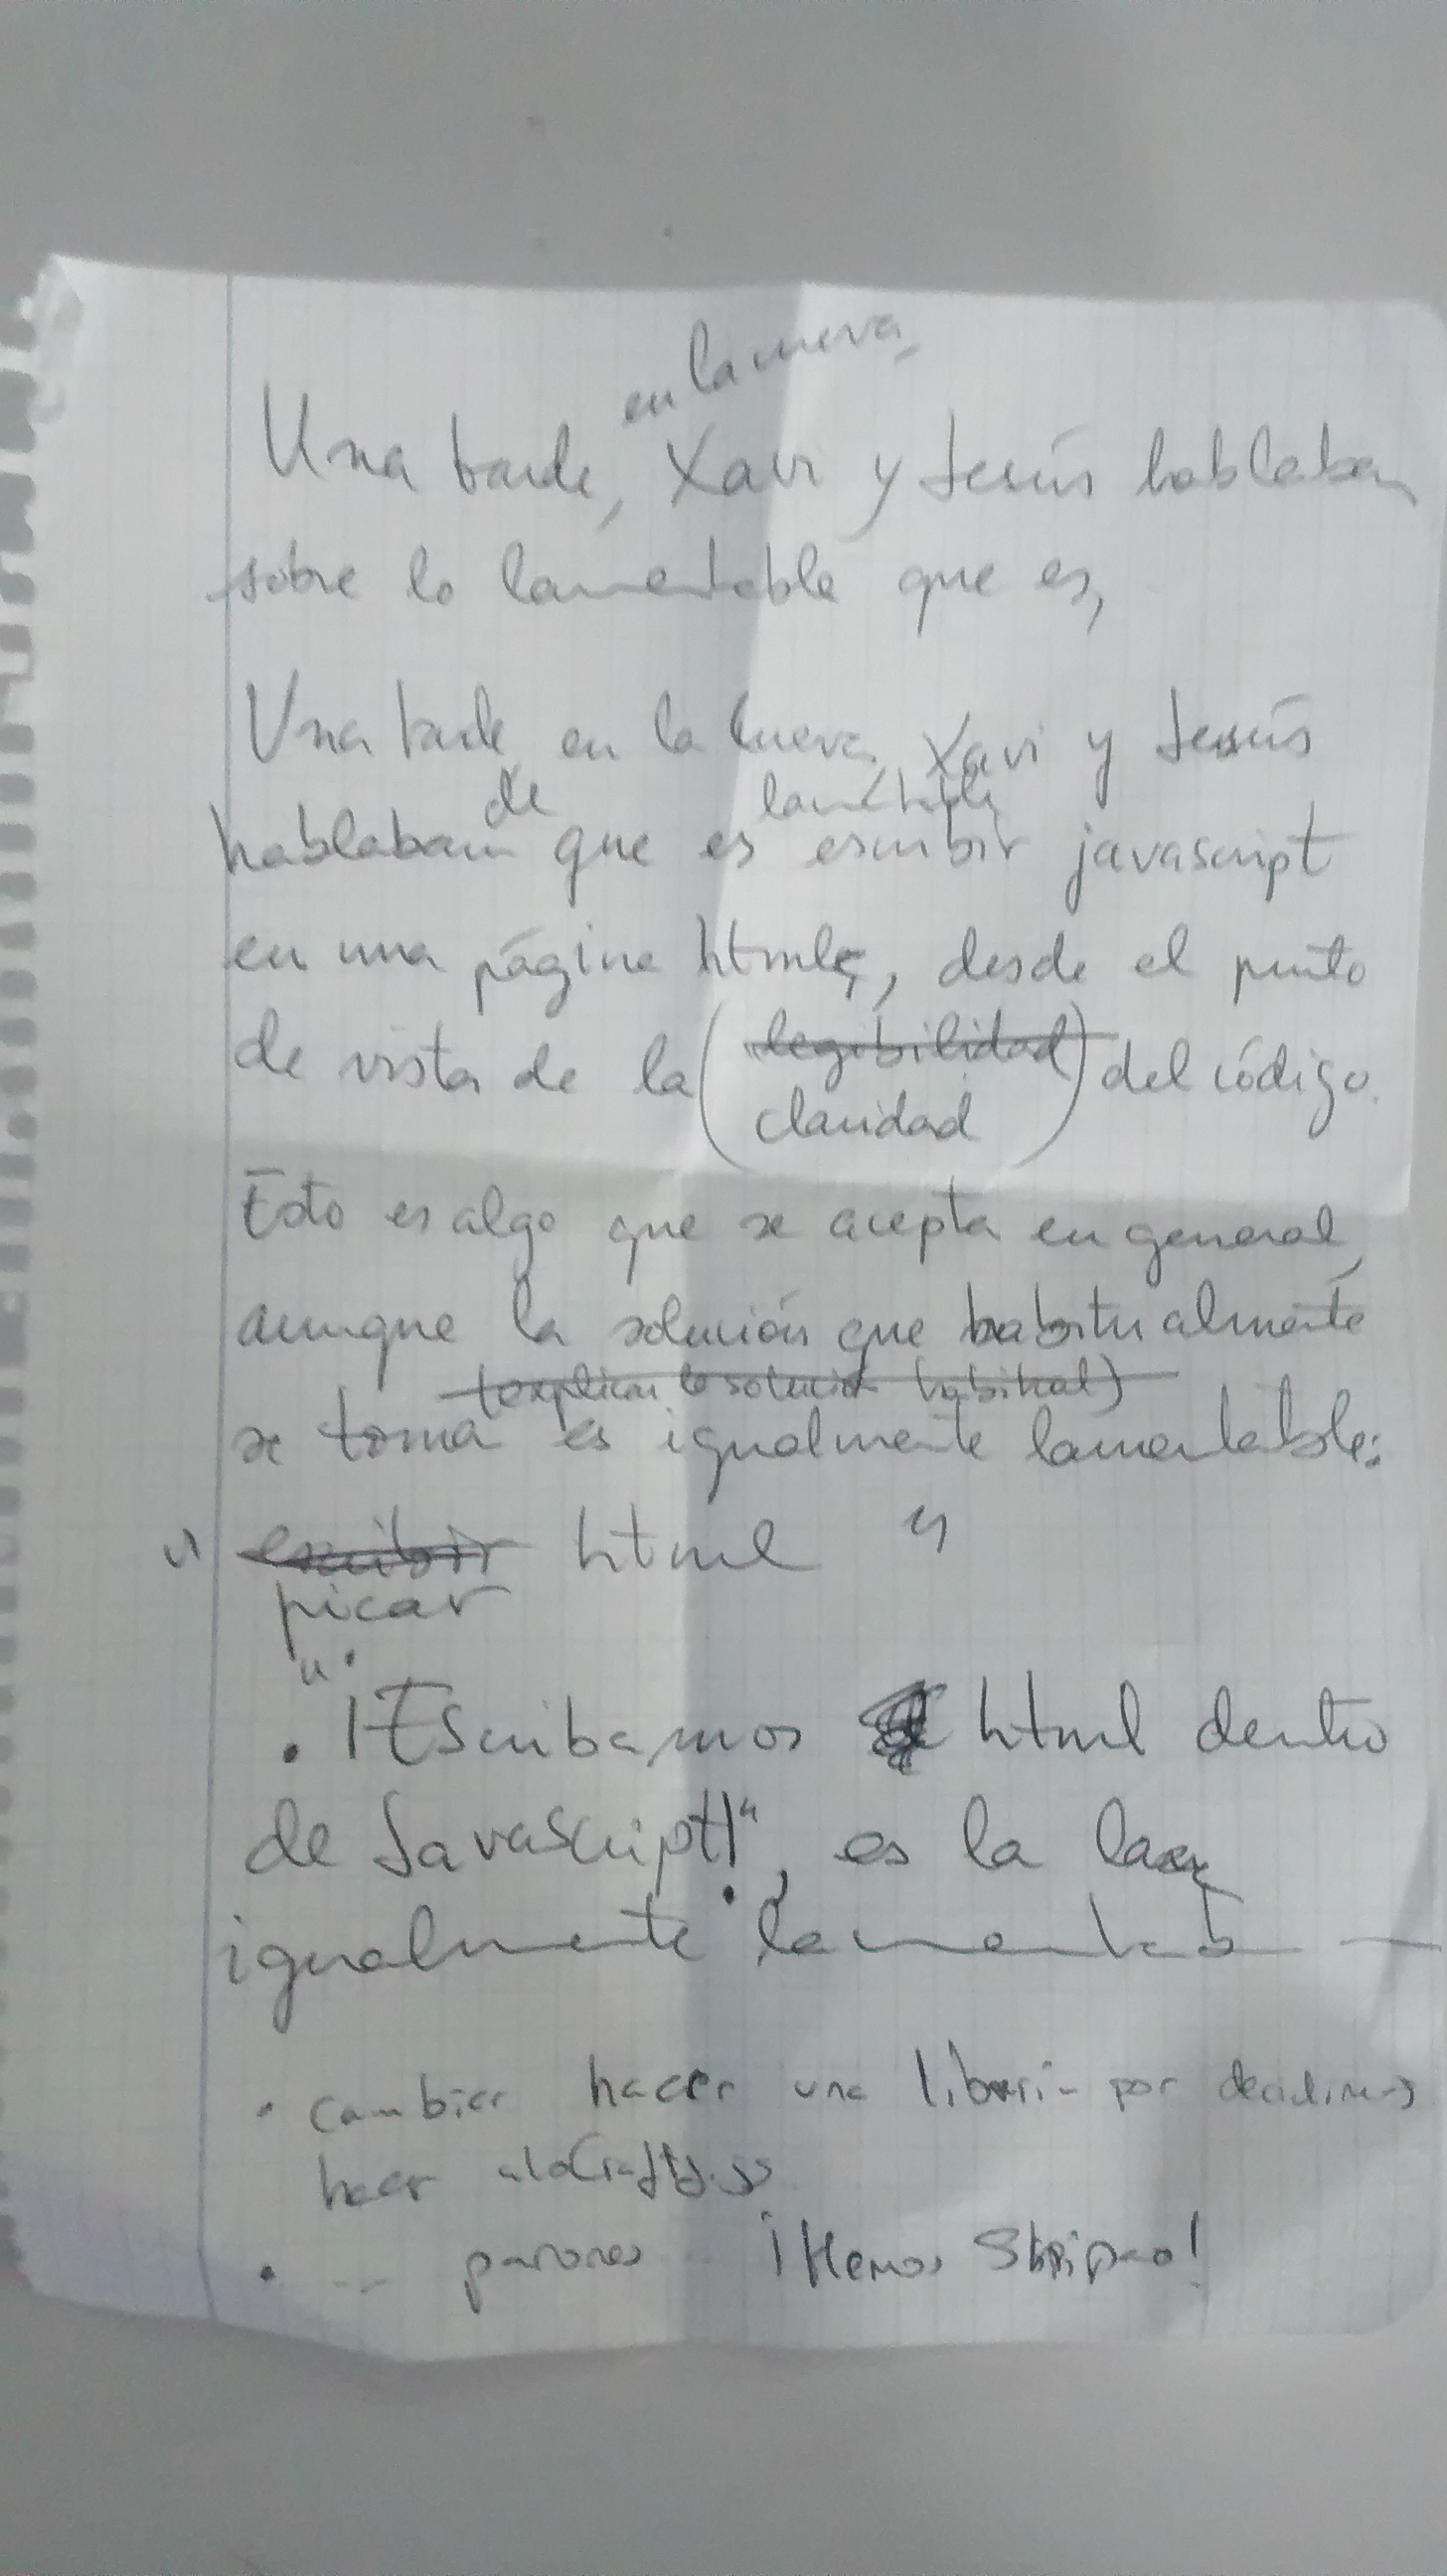 en la nueva
Una tarde, Xavi y Jesús hablaban
sobre lo lamentable que es,
Una tarde en la Cueva, Xavi y Jesús
de lamentable
hablaban que es escribir javascript
en una página html, desde el punto
de vista de la (legibilidad) del código.
claridad
Esto es algo que se acepta en general,
aunque la solución que habitualmente
(explicar la solución habitual)
se toma es igualmente lamentable:
" escribir html "
picar
"
. ¡Escribamos html dentro
de Javascript!", es la
igualmente
• cambiar hacer una librería por decidimos
hacer
• -- ¡Hemos